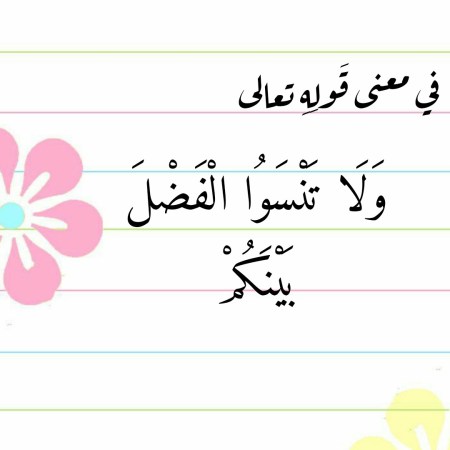 في معنى قَولِهِ تعالى
وَلَا تَنْسَوُا الْفَضْلَ
بَيْنَكُمْ